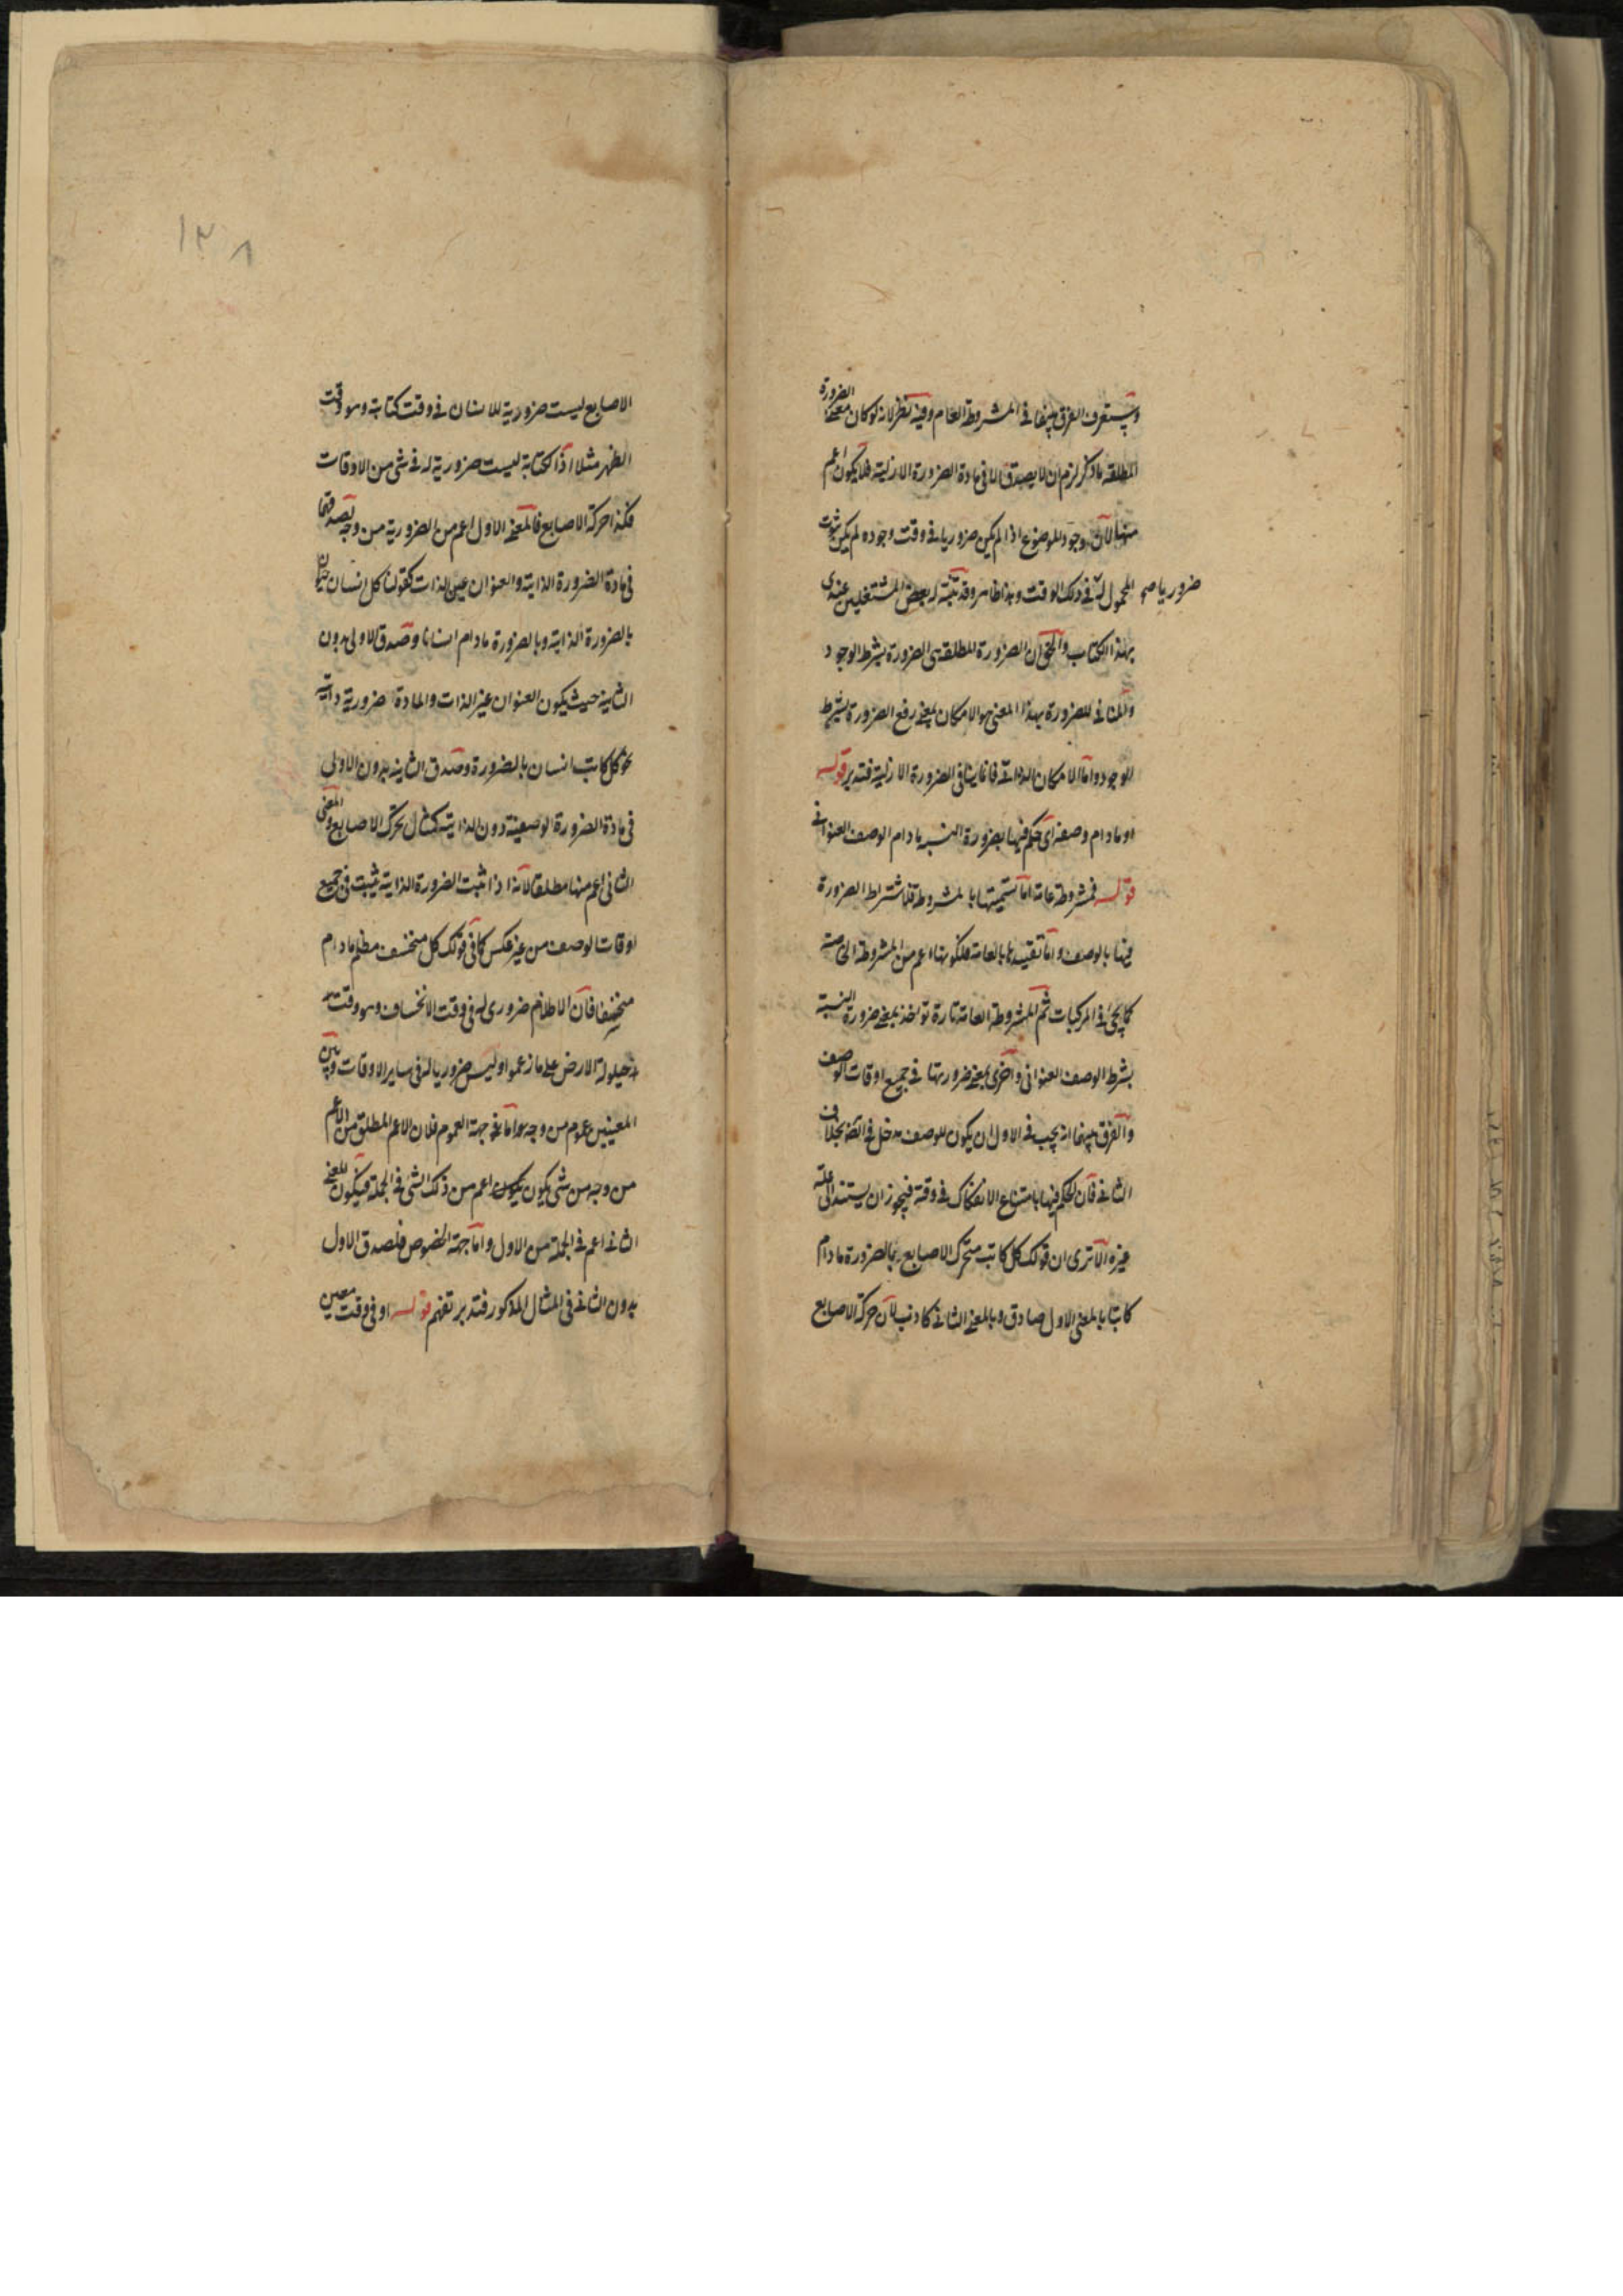 وستعرف الفرق بينهما في المشروطة العامة وفيه نظر لانه لو كان معنى الضرورة
المطلقة ما ذكر لزم ان لا يصدق الا في مادة الضرورة الازلية فلا يكون اعم
منها لان وجود الموضوع اذا لم يكن ضروريا في وقت وجوده لم يكن ثبوت
المحمول له في ذلك الوقت وهذا ظاهر وقد تنبه له بعض المشتغلين عندي
ضروريا صح
بهذا الكتاب والحق ان الضرورة المطلقة هي الضرورة بشرط الوجود
والمنافي للضرورة بهذا المعنى هو الامكان بمعنى رفع الضرورة بشرط
الوجود واما الامكان الذاتي فانما ينافي الضرورة الازلية فتدبر قوله
او مادام وصفه اي حكم فيها بضرورة النسبه مادام الوصف العنواني
قوله فمشروطة عامة اما تسميتها بالمشروطة فلاشتراط الضرورة
فيها بالوصف واما تقييدها بالعامة فلكونها اعم من المشروطة الخاصة
كما يجئ في المركبات ثم المشروطة العامة تارة تؤخذ بمعنى ضرورة النسبة
بشرط الوصف العنواني واخرى بمعنى ضرورتها في جميع اوقات الوصف
والفرق بينهما انه يجب في الاول ان يكون للوصف مدخل في الضرورة بخلاف
الثاني فان الحكم فيها بامتناع الانفكاك في وقته فيجوز ان يستند الى علة
غيره الا ترى ان قولك كل كاتب متحرك الاصابع بالضرورة مادام
كاتبا بالمعنى الاول صادق وبالمعنى الثاني كاذب لان حركة الاصابع
١٣٨
الاصابع ليست ضرورية للانسان في وقت كتابة وهو وقت
الظهر مثلا اذ الكتابة ليست ضرورية له في شئ من الاوقات
فكذا حركة الاصابع فالمعنى الاول اعم من الضرورية من وجه لصدقهما
في مادة الضرورة الذاتية والعنوان عين الذات كقولنا كل انسان حيوان
بالضرورة الذاتية وبالضرورة مادام انسانا وصدق الاولى بدون
الثانية حيث يكون العنوان غير الذات والمادة ضرورية ذاتية
نحو كل كاتب انسان بالضرورة وصدق الثانية بدون الاولى
في مادة الضرورة الوصفية دون الذاتية كمثال تحرك الاصابع والمعنى
الثاني اعم منها مطلقا لانه اذا ثبت الضرورة الذاتية ثبت في جميع
اوقات الوصف من غير عكس كما في قولك كل منخسف مظلم مادام
منخسفا فان الاظلام ضروري له في وقت الانخساف وهو وقت
حيلولة الارض على ما زعموا وليس ضروريا له في ساير الاوقات وبين
المعنيين عموم من وجه اما في جهة العموم فلان الاعم المطلق من الاعم
من وجه من شئ يكون اعم من ذلك الشئ في الجملة فيكون المعنى
الثاني اعم في الجملة من الاول واما جهة الخصوص فلصدق الاول
بدون الثاني في المثال المذكور فتدبر تفهم قوله او في وقت معين